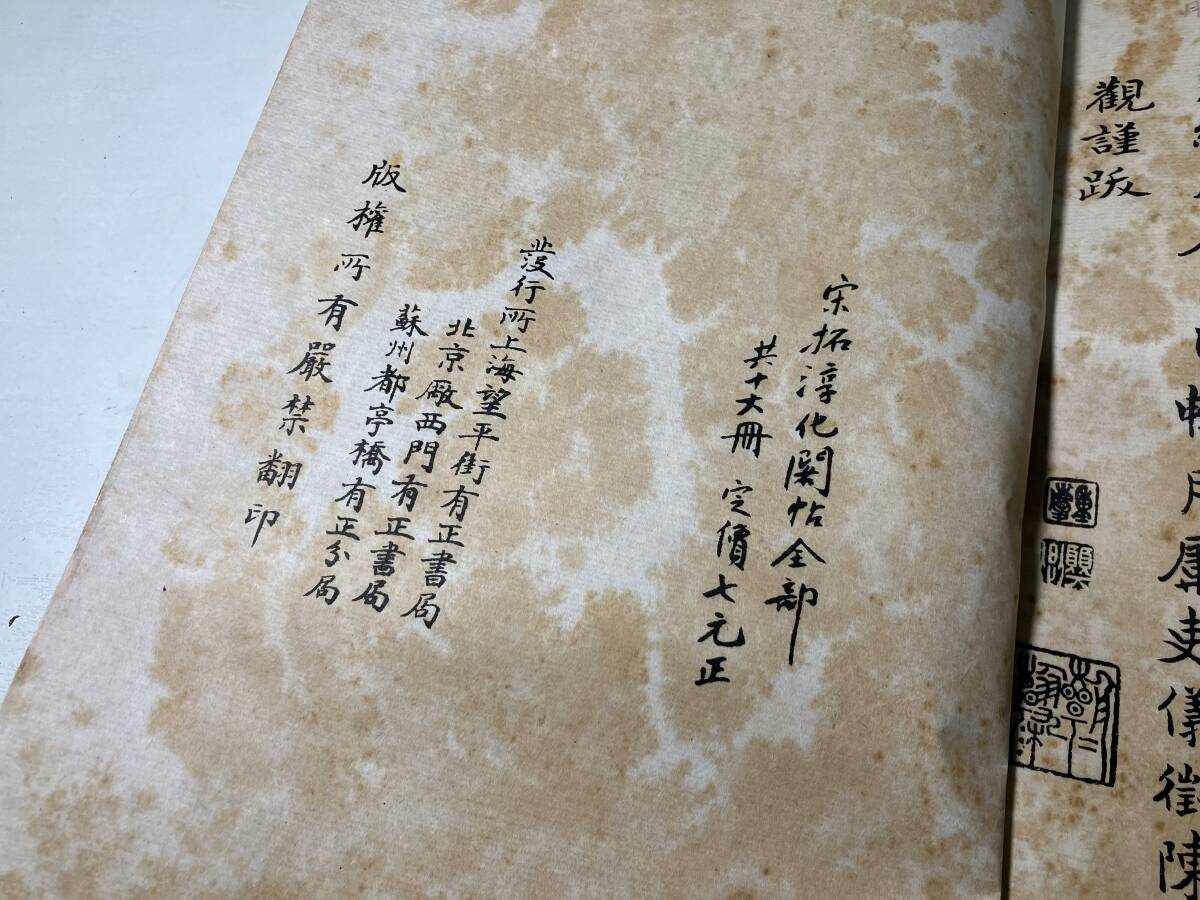 屬吏儀徵陳
觀謹跋
宋拓淳化閣帖全部
共十大冊 定價七元正
發行所上海望平街有正書局
北京廠西門有正書局
蘇州都亭橋有正分局
版權所有嚴禁翻印